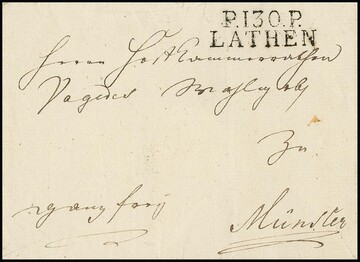 P.130.P.
LATHEN
Herrn Hofkammerrathen
Vagedes
Zu
ganz frey
Münster